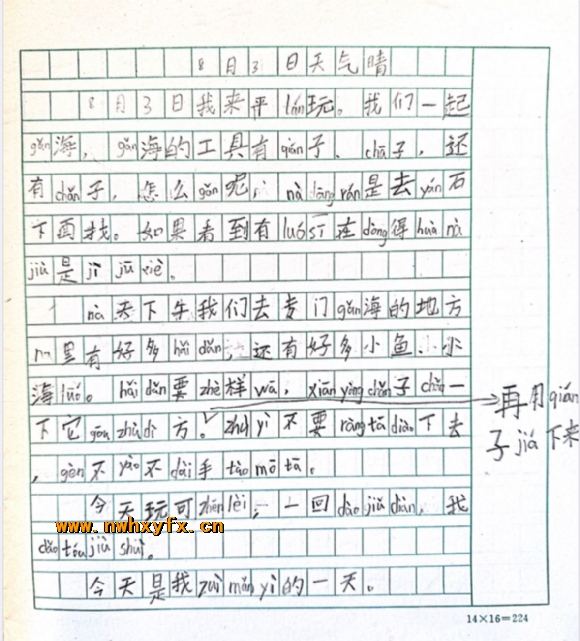 8月3日天气晴
8月3日我来平lán玩。我们一起
gǎn海，gǎn海的工具有qián子、chā子，还
有chǎn子，怎么gǎn呢，nà dāng rán是去yán石
下面找。如果看到有luó sī在dòng得huà nà
jiù是jì jū xiè。
nà天下午我们去专门gǎn海的地方
里有好多hǎi dǎn，还有好多小鱼小小
海luó。hǎi dǎn要zhè样wā，xiān yòng chǎn子chǎn一
下它gōu zhù dì方。zhù yì不要ràng tā diào下去
再用qián
子jiá下来
，gèn不yào不dài手tào mō tā。
今天玩可zhēn lèi，一回dào jiǔ diàn，我
dǎo tóu jiù shuì。
今天是我zuì mǎn yì的一天。
www.nwhxyfx.cn
14×16=224